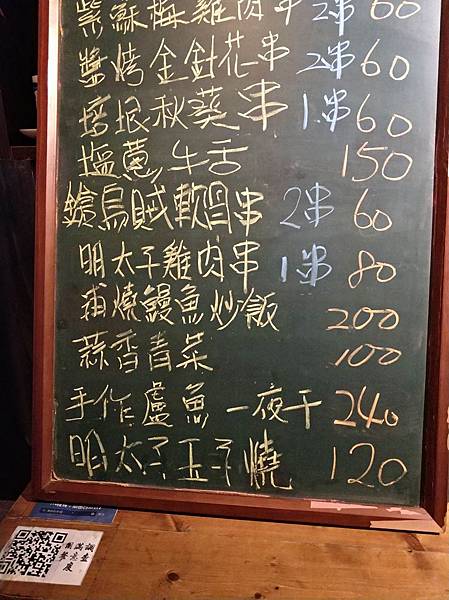 紫蘇梅雞肉串 2串 60
醬烤金針花串 2串 60
培根秋葵串 1串 60
塩蔥牛舌 150
鎗烏賊軟骨串 2串 60
明太子雞肉串 1串 80
蒲燒鰻魚炒飯 200
蒜香青菜 100
手作盧魚一夜干 240
明太子玉子燒 120